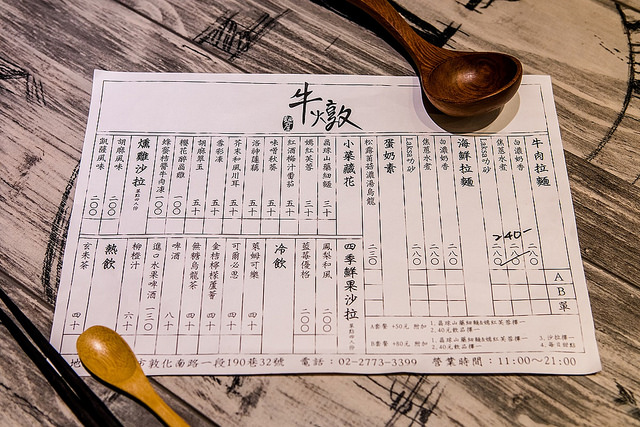 牛燉
牛肉拉麵
白濃奶香 二八〇
焦蔥水煮 二八〇
Laksa叻砂 二八〇
240-
海鮮拉麵
白濃奶香 二八〇
焦蔥水煮 二八〇
Laksa叻砂 二八〇
蛋奶素
松露菌菇濃湯烏龍 二三〇
A
B
單
小菜藏花
晶球山藥細麵 三十
嫣紅芙蓉 三十
紅酒梅汁番茄 五十
味噌秋葵 五十
洛神蓮藕 五十
芥末和風川耳 五十
雲彩凍 五十
胡麻翠玉 五十
櫻花醉晶雞 一〇〇
蜂蜜桔醬牛肉凍 一〇〇
燻雞沙拉
胡麻風味 二〇〇
凱薩風味 二〇〇
四季鮮果沙拉
鳳梨和風 二〇〇
藍莓優格 二〇〇
冷飲
萊姆可樂 四十
可爾必思 四十
金桔檸檬蘆薈 四十
無糖烏龍茶 四十
啤酒 八十
進口水果啤酒 一三〇
柳橙汁 六十
熱飲
玄米茶 四十
A套餐 +50元 附加 1. 晶球山藥細麵&嫣紅芙蓉擇一
2. 40元飲品擇一
B套餐 +80元 附加 1. 晶球山藥細麵&嫣紅芙蓉擇一 3. 沙拉擇一
2. 40元飲品擇一 4. 每日甜點
地 市敦化南路一段190巷32號 電話：02-2773-3399 營業時間：11:00～21:00